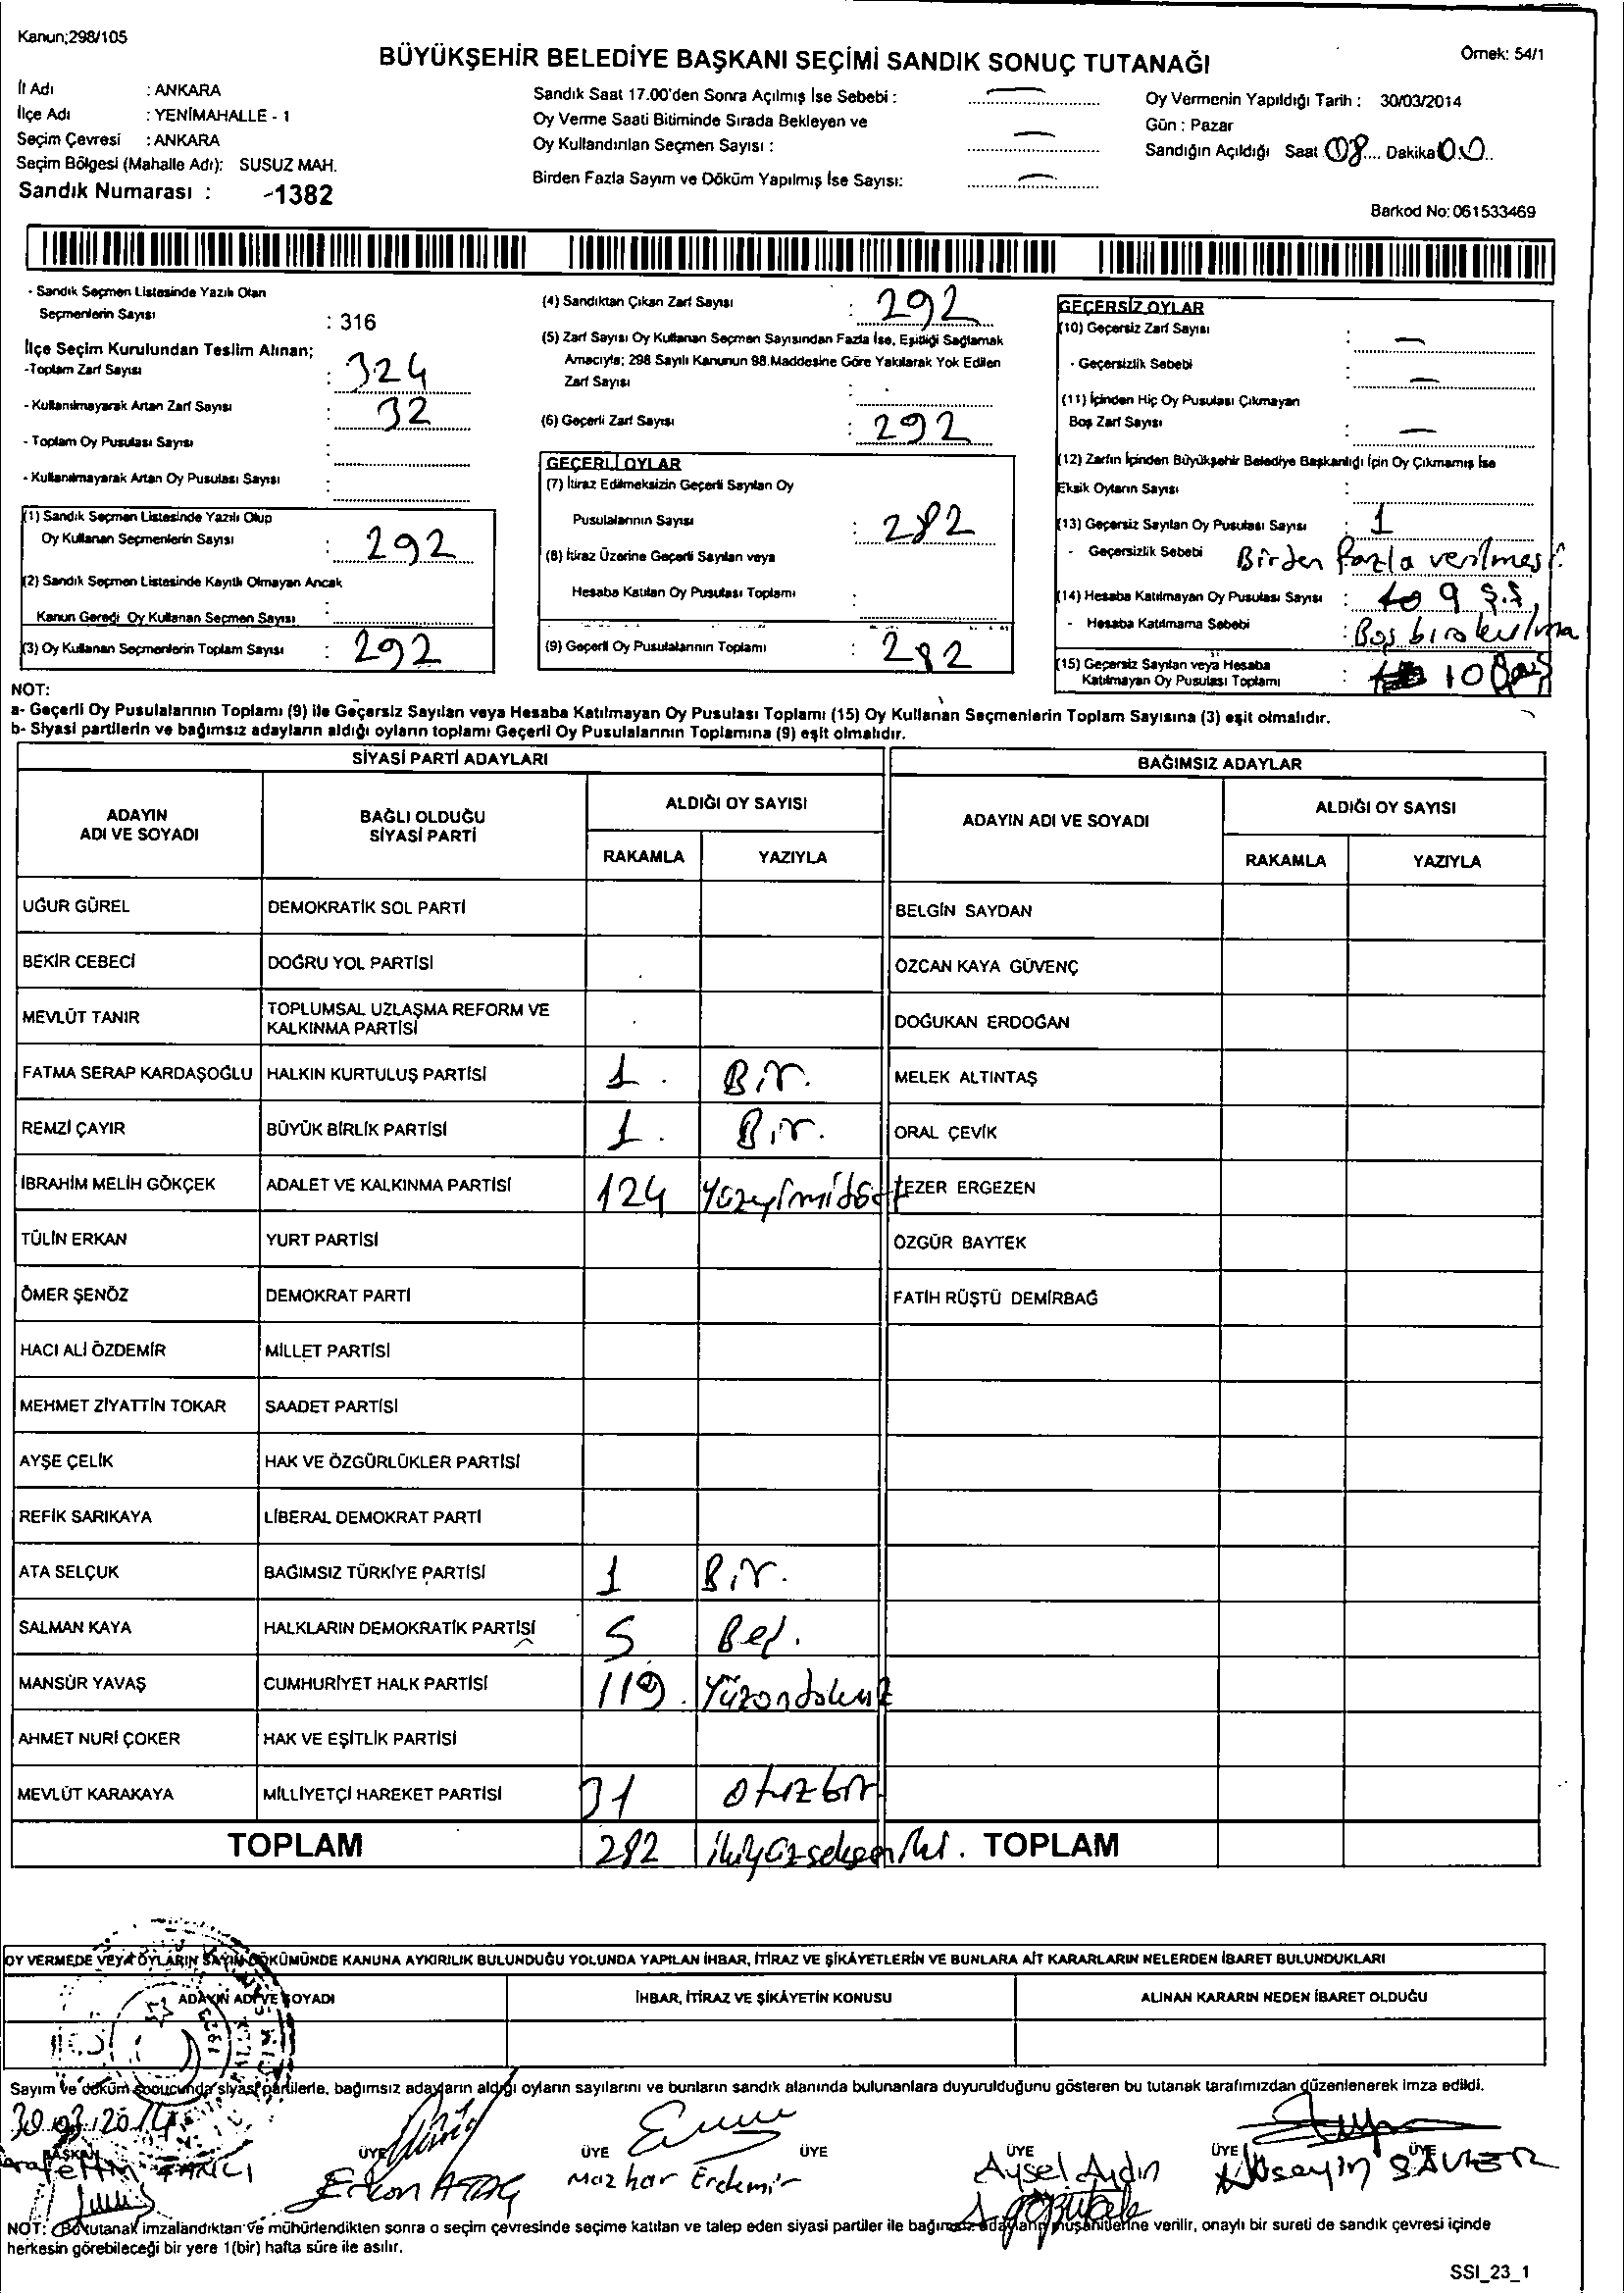 Kanun;298/105
BÜYÜKŞEHİR BELEDİYE BAŞKANI SEÇİMİ SANDIK SONUÇ TUTANAĞI
Örnek: 54/1
İl Adı : ANKARA
İlçe Adı : YENİMAHALLE - 1
Seçim Çevresi : ANKARA
Seçim Bölgesi (Mahalle Adı): SUSUZ MAH.
Sandık Numarası : -1382
Sandık Saat 17.00'den Sonra Açılmış İse Sebebi : —
Oy Verme Saati Bitiminde Sırada Bekleyen ve
Oy Kullandırılan Seçmen Sayısı : —
Birden Fazla Sayım ve Döküm Yapılmış İse Sayısı: —
Oy Vermenin Yapıldığı Tarih : 30/03/2014
Gün : Pazar
Sandığın Açıldığı Saat 08.... Dakika 00..
Barkod No: 061533469
- Sandık Seçmen Listesinde Yazılı Olan
Seçmenlerin Sayısı : 316
İlçe Seçim Kurulundan Teslim Alınan;
-Toplam Zarf Sayısı : 324
- Kullanılmayarak Artan Zarf Sayısı : 32
- Toplam Oy Pusulası Sayısı :
- Kullanılmayarak Artan Oy Pusulası Sayısı :
(1) Sandık Seçmen Listesinde Yazılı Olup
Oy Kullanan Seçmenlerin Sayısı : 292
(2) Sandık Seçmen Listesinde Kayıtlı Olmayan Ancak
Kanun Gereği Oy Kullanan Seçmen Sayısı :
(3) Oy Kullanan Seçmenlerin Toplam Sayısı : 292
(4) Sandıktan Çıkan Zarf Sayısı : 292
(5) Zarf Sayısı Oy Kullanan Seçmen Sayısından Fazla İse, Eşitliği Sağlamak
Amacıyla; 298 Sayılı Kanunun 98.Maddesine Göre Yakılarak Yok Edilen
Zarf Sayısı :
(6) Geçerli Zarf Sayısı : 292
GEÇERLİ OYLAR
(7) İtiraz Edilmeksizin Geçerli Sayılan Oy
Pusulalarının Sayısı : 282
(8) İtiraz Üzerine Geçerli Sayılan veya
Hesaba Katılan Oy Pusulası Toplamı :
(9) Geçerli Oy Pusulalarının Toplamı : 282
GEÇERSİZ OYLAR
(10) Geçersiz Zarf Sayısı : —
- Geçersizlik Sebebi : —
(11) İçinden Hiç Oy Pusulası Çıkmayan
Boş Zarf Sayısı : —
(12) Zarfın İçinden Büyükşehir Belediye Başkanlığı İçin Oy Çıkmamış İse
Eksik Oyların Sayısı :
(13) Geçersiz Sayılan Oy Pusulası Sayısı : 1
- Geçersizlik Sebebi Birden fazla verilmesi.
(14) Hesaba Katılmayan Oy Pusulası Sayısı : 9
- Hesaba Katılmama Sebebi : Boş bırakılma
(15) Geçersiz Sayılan veya Hesaba
Katılmayan Oy Pusulası Toplamı : 10
NOT:
a- Geçerli Oy Pusulalarının Toplamı (9) ile Geçersiz Sayılan veya Hesaba Katılmayan Oy Pusulası Toplamı (15) Oy Kullanan Seçmenlerin Toplam Sayısına (3) eşit olmalıdır.
b- Siyasi partilerin ve bağımsız adayların aldığı oyların toplamı Geçerli Oy Pusulalarının Toplamına (9) eşit olmalıdır.
SİYASİ PARTİ ADAYLARI BAĞIMSIZ ADAYLAR
ADAYIN ADI VE SOYADI BAĞLI OLDUĞU SİYASİ PARTİ ALDIĞI OY SAYISI ADAYIN ADI VE SOYADI ALDIĞI OY SAYISI
RAKAMLA YAZIYLA RAKAMLA YAZIYLA
UĞUR GÜREL DEMOKRATİK SOL PARTİ BELGİN SAYDAN
BEKİR CEBECİ DOĞRU YOL PARTİSİ ÖZCAN KAYA GÜVENÇ
MEVLÜT TANIR TOPLUMSAL UZLAŞMA REFORM VE KALKINMA PARTİSİ DOĞUKAN ERDOĞAN
FATMA SERAP KARDAŞOĞLU HALKIN KURTULUŞ PARTİSİ 1. Bir. MELEK ALTINTAŞ
REMZİ ÇAYIR BÜYÜK BİRLİK PARTİSİ 1. Bir. ORAL ÇEVİK
İBRAHİM MELİH GÖKÇEK ADALET VE KALKINMA PARTİSİ 124 Yüzyirmidört EZER ERGEZEN
TÜLİN ERKAN YURT PARTİSİ ÖZGÜR BAYTEK
ÖMER ŞENÖZ DEMOKRAT PARTİ FATİH RÜŞTÜ DEMİRBAĞ
HACI ALİ ÖZDEMİR MİLLET PARTİSİ
MEHMET ZİYATTİN TOKAR SAADET PARTİSİ
AYŞE ÇELİK HAK VE ÖZGÜRLÜKLER PARTİSİ
REFİK SARIKAYA LİBERAL DEMOKRAT PARTİ
ATA SELÇUK BAĞIMSIZ TÜRKİYE PARTİSİ 1 Bir.
SALMAN KAYA HALKLARIN DEMOKRATİK PARTİSİ 5 Beş.
MANSÜR YAVAŞ CUMHURİYET HALK PARTİSİ 119. Yüzondokuz
AHMET NURİ ÇOKER HAK VE EŞİTLİK PARTİSİ
MEVLÜT KARAKAYA MİLLİYETÇİ HAREKET PARTİSİ 31 otuzbir
TOPLAM 282 ikiyüzsekseniki. TOPLAM
OY VERMEDE VEYA OYLARIN SAYIM DÖKÜMÜNDE KANUNA AYKIRILIK BULUNDUĞU YOLUNDA YAPILAN İHBAR, İTİRAZ VE ŞİKÂYETLERİN VE BUNLARA AİT KARARLARIN NELERDEN İBARET BULUNDUKLARI
ADAYIN ADI VE SOYADI İHBAR, İTİRAZ VE ŞİKÂYETİN KONUSU ALINAN KARARIN NEDEN İBARET OLDUĞU
Sayım ve döküm sonucunda siyasi partilerle, bağımsız adayların aldığı oyların sayılarını ve bunların sandık alanında bulunanlara duyurulduğunu gösteren bu tutanak tarafımızdan düzenlenerek imza edildi.
30.03.2014
BAŞKAN ÜYE ÜYE ÜYE ÜYE ÜYE ÜYE
Erkan Mazhar Erdemir Aysel Aydın Hüseyin
NOT: Bu tutanak imzalandıktan ve mühürlendikten sonra o seçim çevresinde seçime katılan ve talep eden siyasi partiler ile bağımsız adayların müşahitlerine verilir, onaylı bir sureti de sandık çevresi içinde
herkesin görebileceği bir yere 1(bir) hafta süre ile asılır.
SSI_23_1